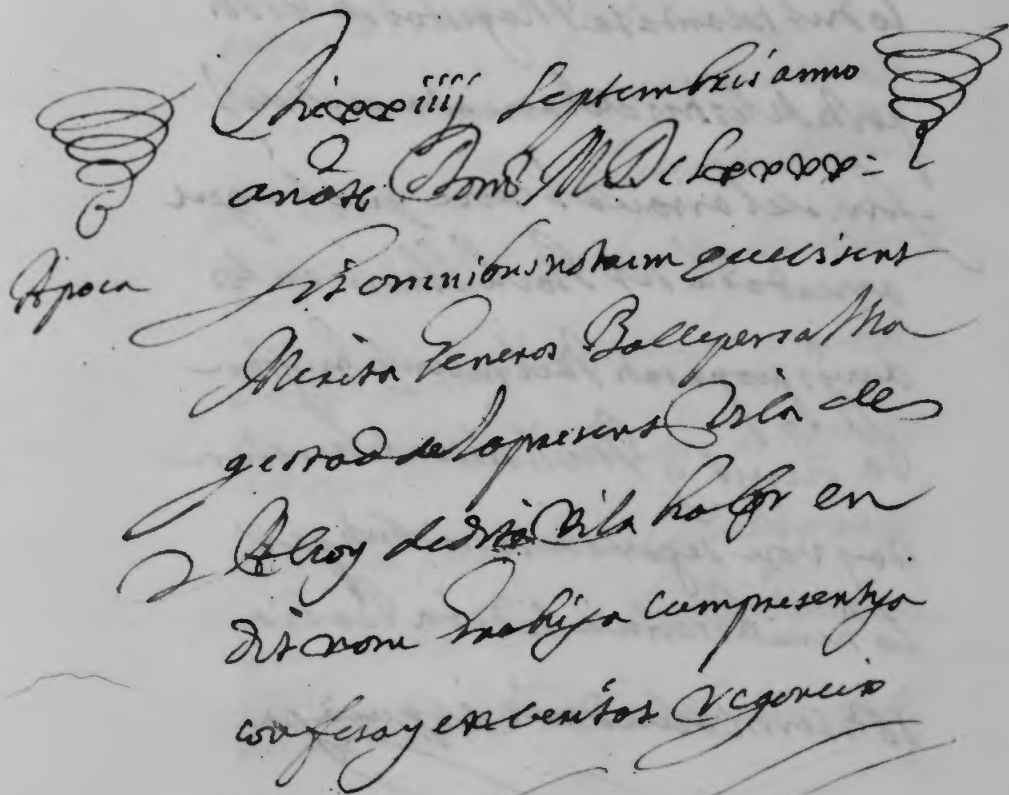 Die xxiiij Septembris anno
anat Domi M Dc Lxxxx =
Apoca
Sit omnibus notum que Visent
Merita Generos Balle per sa Ma
gestad de la present Vila de
Alcoy de dita Vila habr en
dit nom cum presentja
confesa y en veritat regoneix